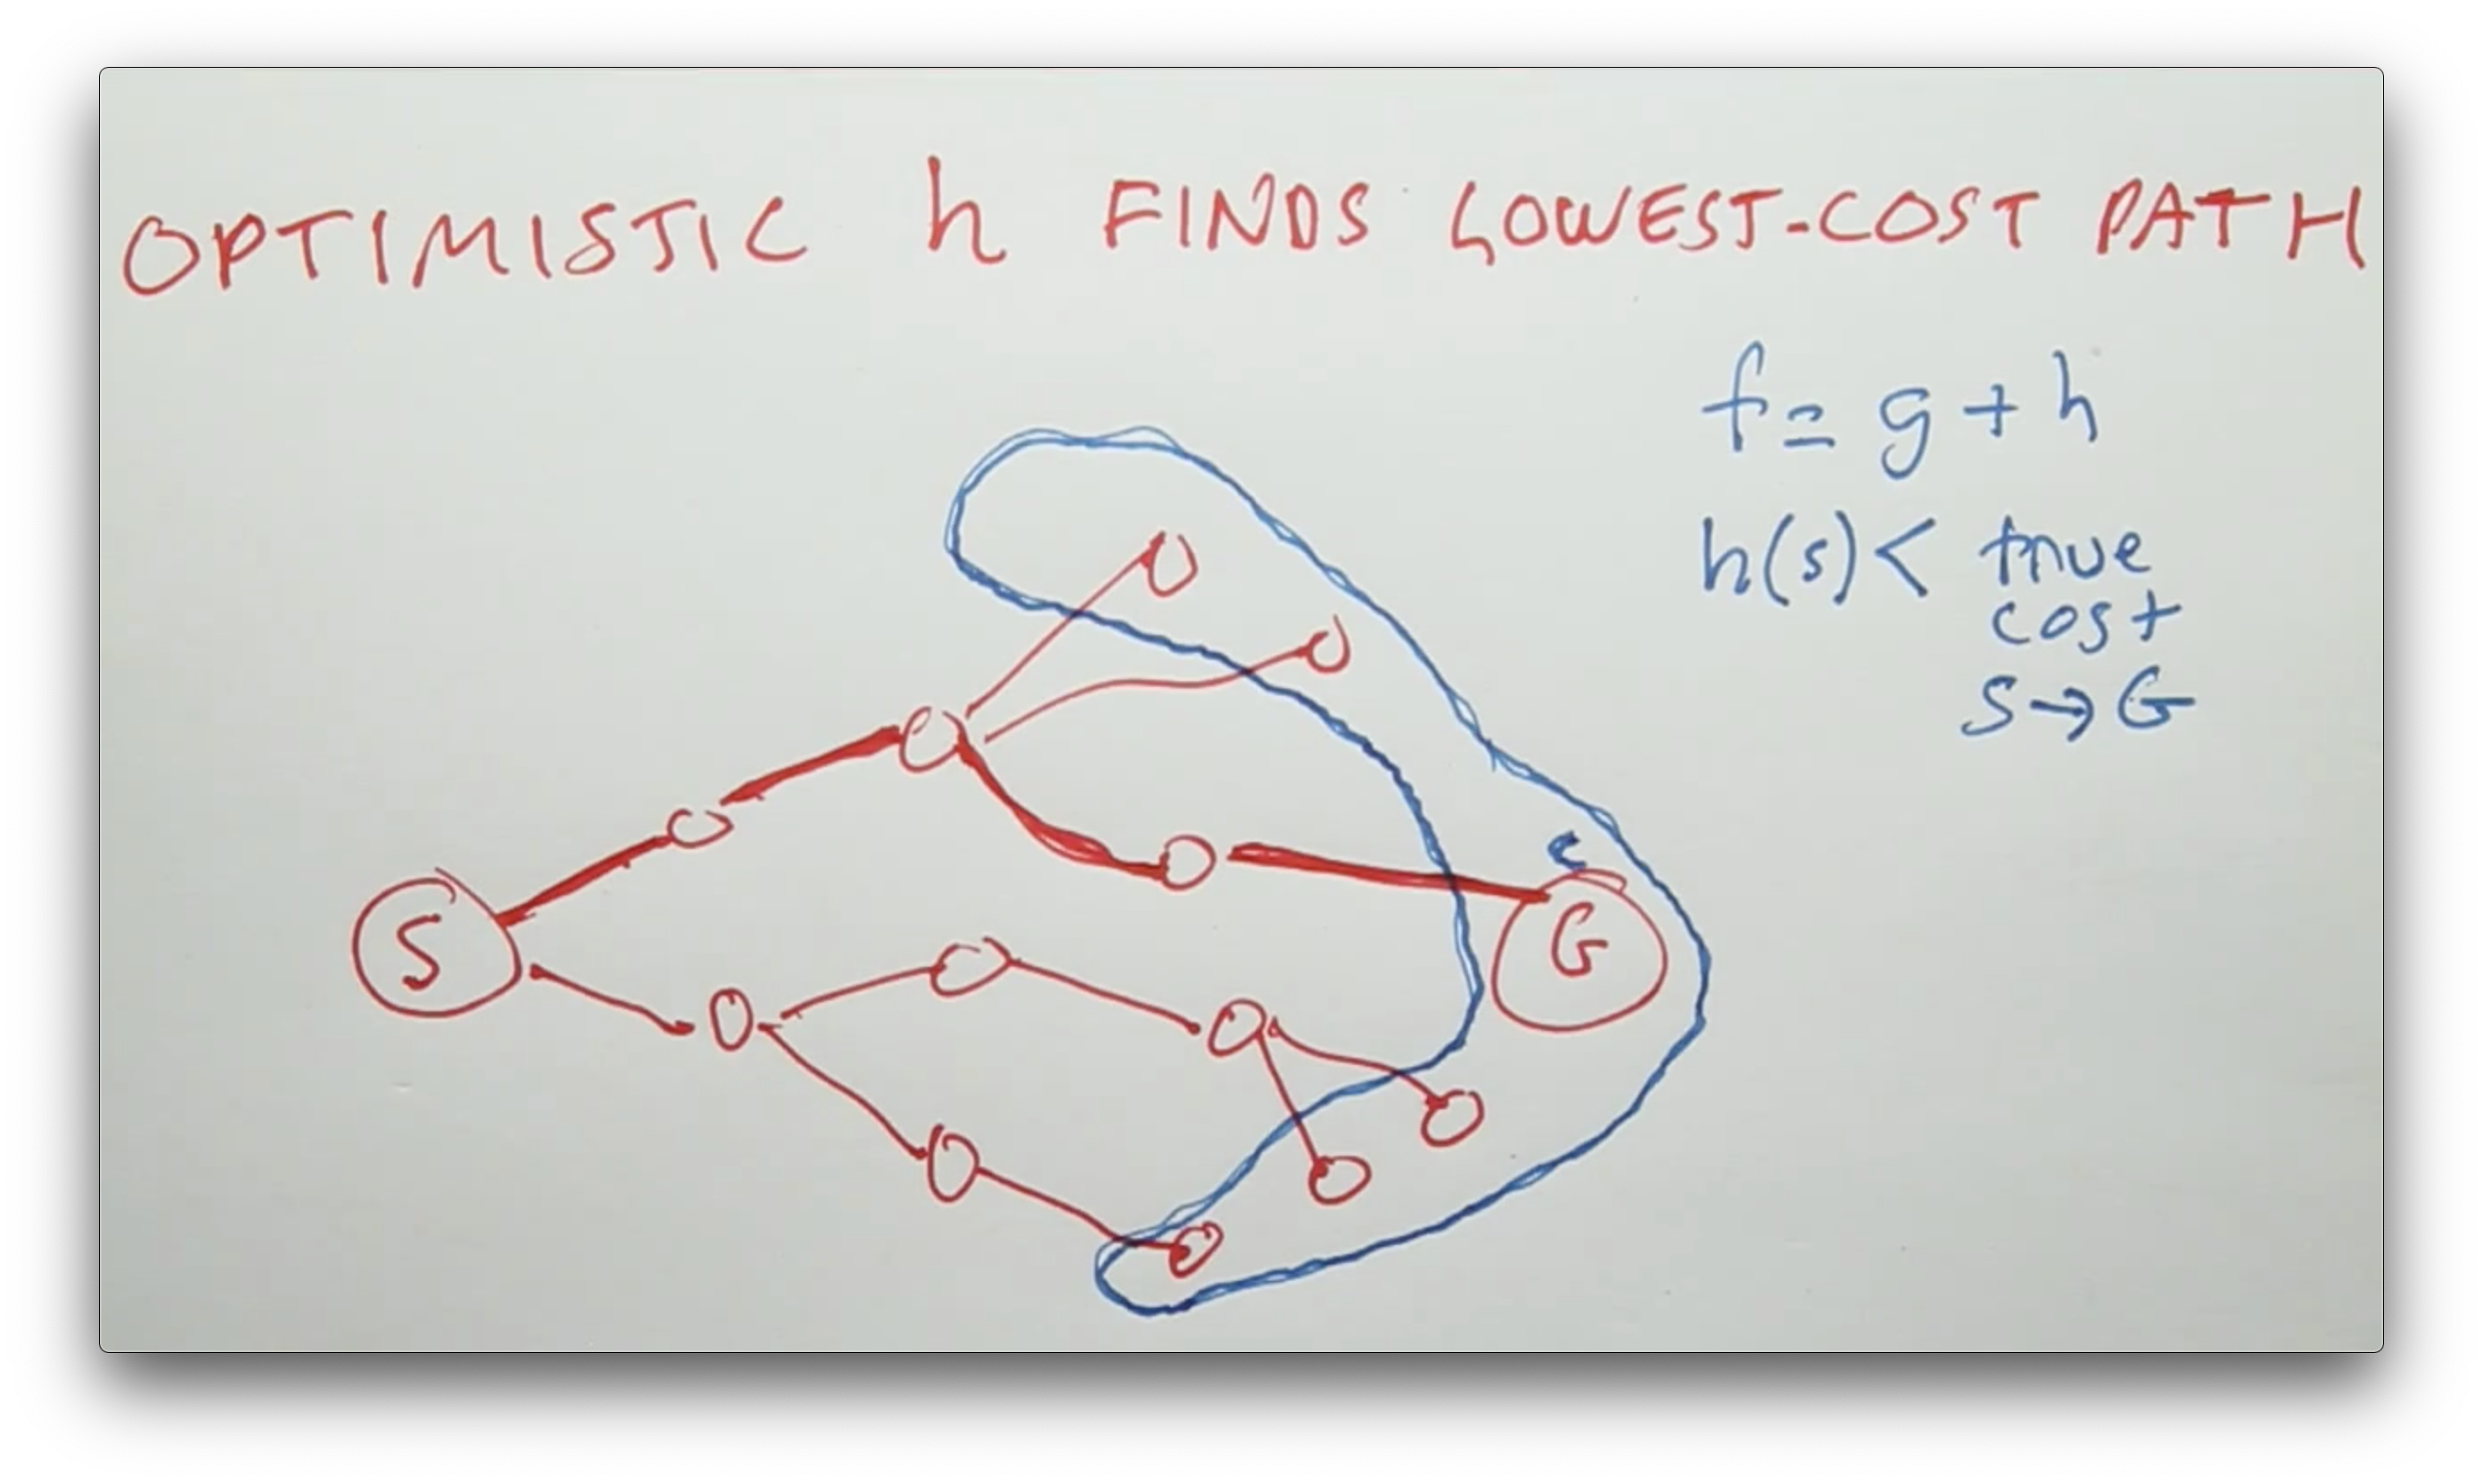 OPTIMISTIC h FINDS LOWEST-COST PATH
f = g + h
h(s) < true
cost
s → G
c
S
G